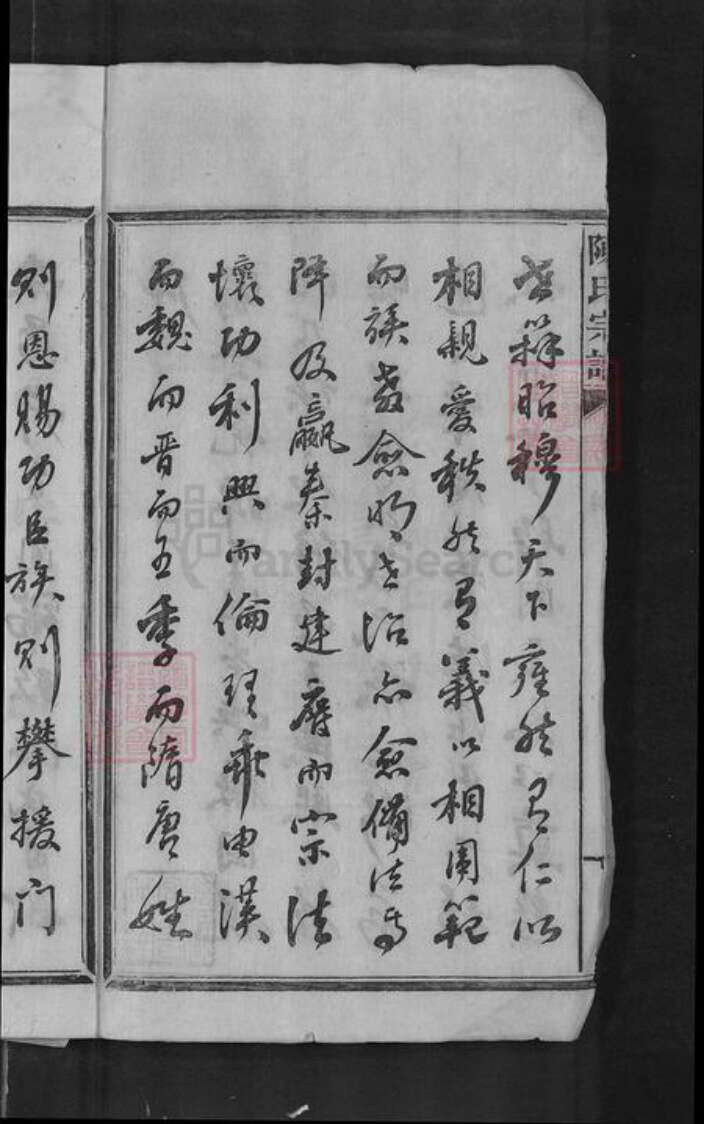 陳氏宗譜
一
世昭穆天下雍然有仁以
相親愛秩然有義以相圍範
而族愈明世治亦愈備法
降及嬴秦封建廢而宗法
懷功利興而倫理乖由漢
而魏而晉而五季而隋唐姓
則恩賜功臣族則攀援門
FamilySearch